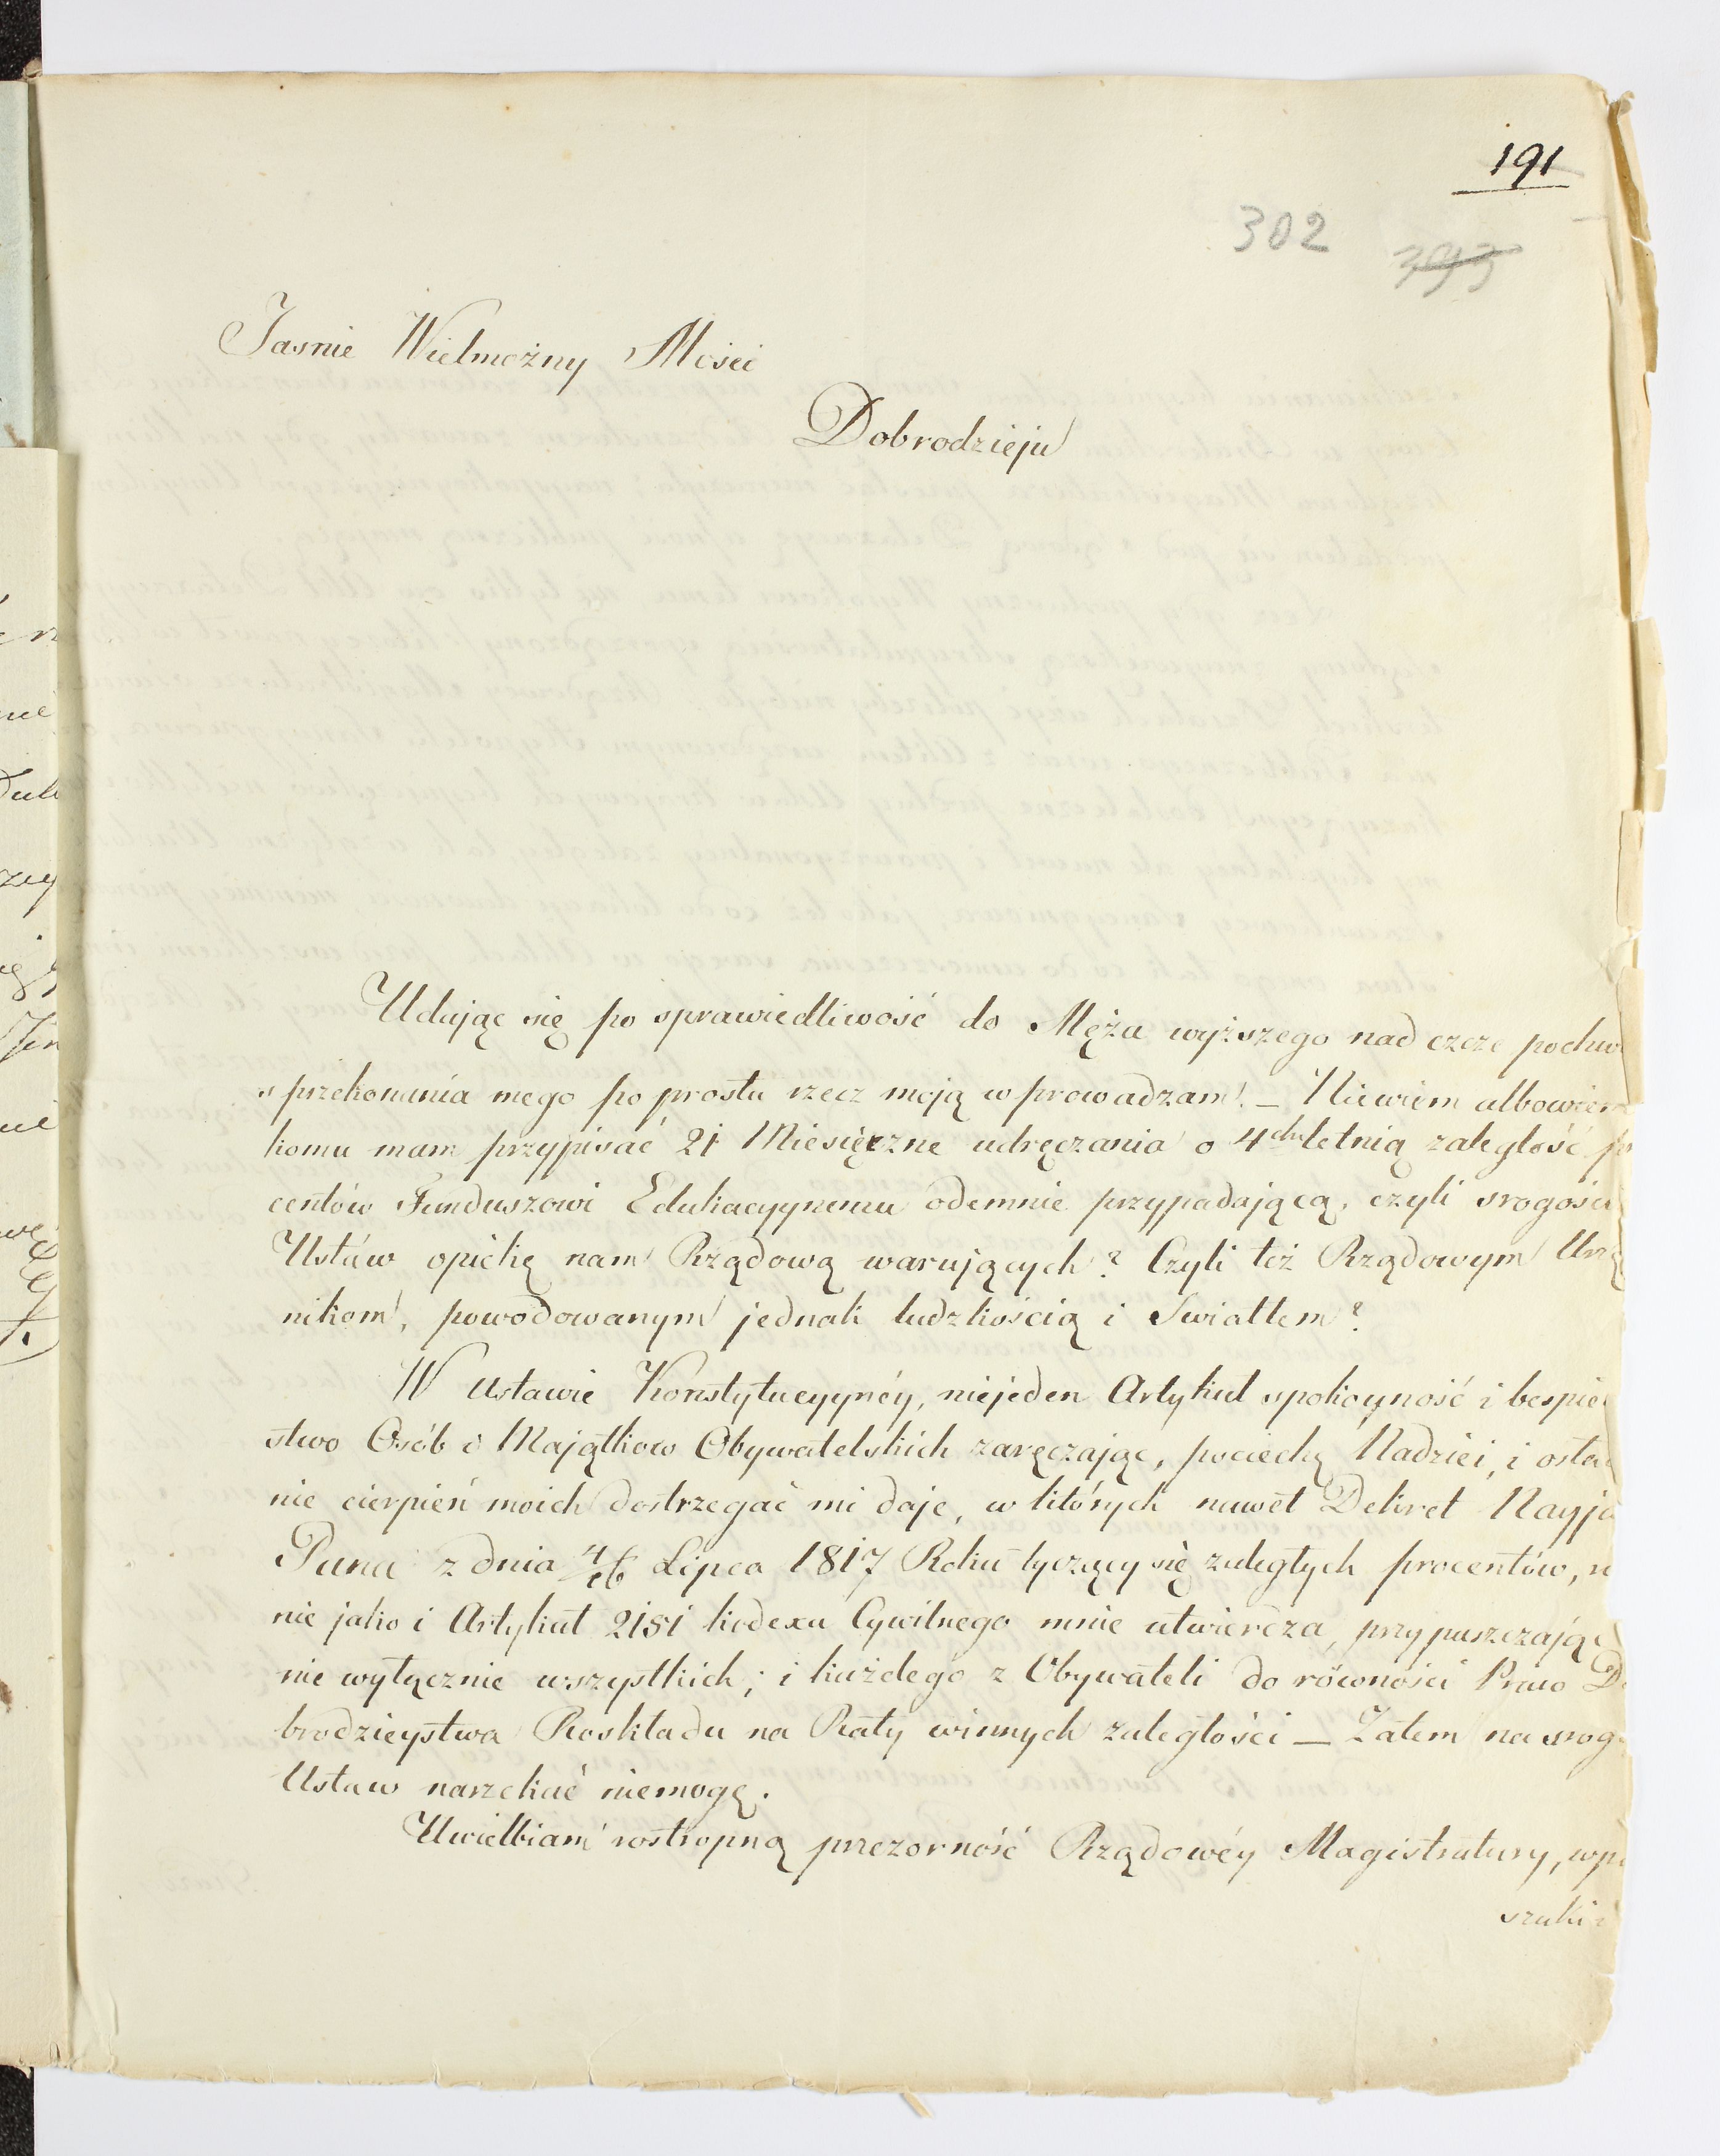 191
302
393
Jasnie Wielmożny Mości
Dobrodzieju
Udając się po sprawiedliwość do Męża wyższego nad czcze pochw
s przekonania mego po prostu rzecz moją w prowadzam. _ Niewiem albowiem
komu mam przypisać 21 Miesięczne udręczania o 4ch letnią zaległość p
centów Funduszowi Edukacyynemu odemnie przypadającą, czyli srogości
Ustaw opiekę nam Rządową warujących? Czyli też Rządowym Urzę
nikom, powodowanym jednak ludzkością i Swiatłem?
W Ustawie Konstytucyynéy, niejeden Artykuł spokoyność i bespie
stwo Osób i Majątkow Obywatelskich zaręczając, pociechę Nadziei, i osta
nie cierpień moich dostrzegać mi daje, w których nawet Dekret Nayja
Pana z dnia 4/16 Lipca 1817 Roku tyczący się zaległych procentów, r
nie jako i Artykuł 2151 kodexu Cywilnego mnie utwierdza, przypuszczając
nie wyłącznie wszystkich; i każdego z Obywateli do równości Praw D
brodzieystwa Roskładu na Raty winnych zaległości _ Zatem na srog
Ustaw narzekać niemogę.
Uwielbiam rostropną przezorność Rządowéy Magistratury, wp
szuki